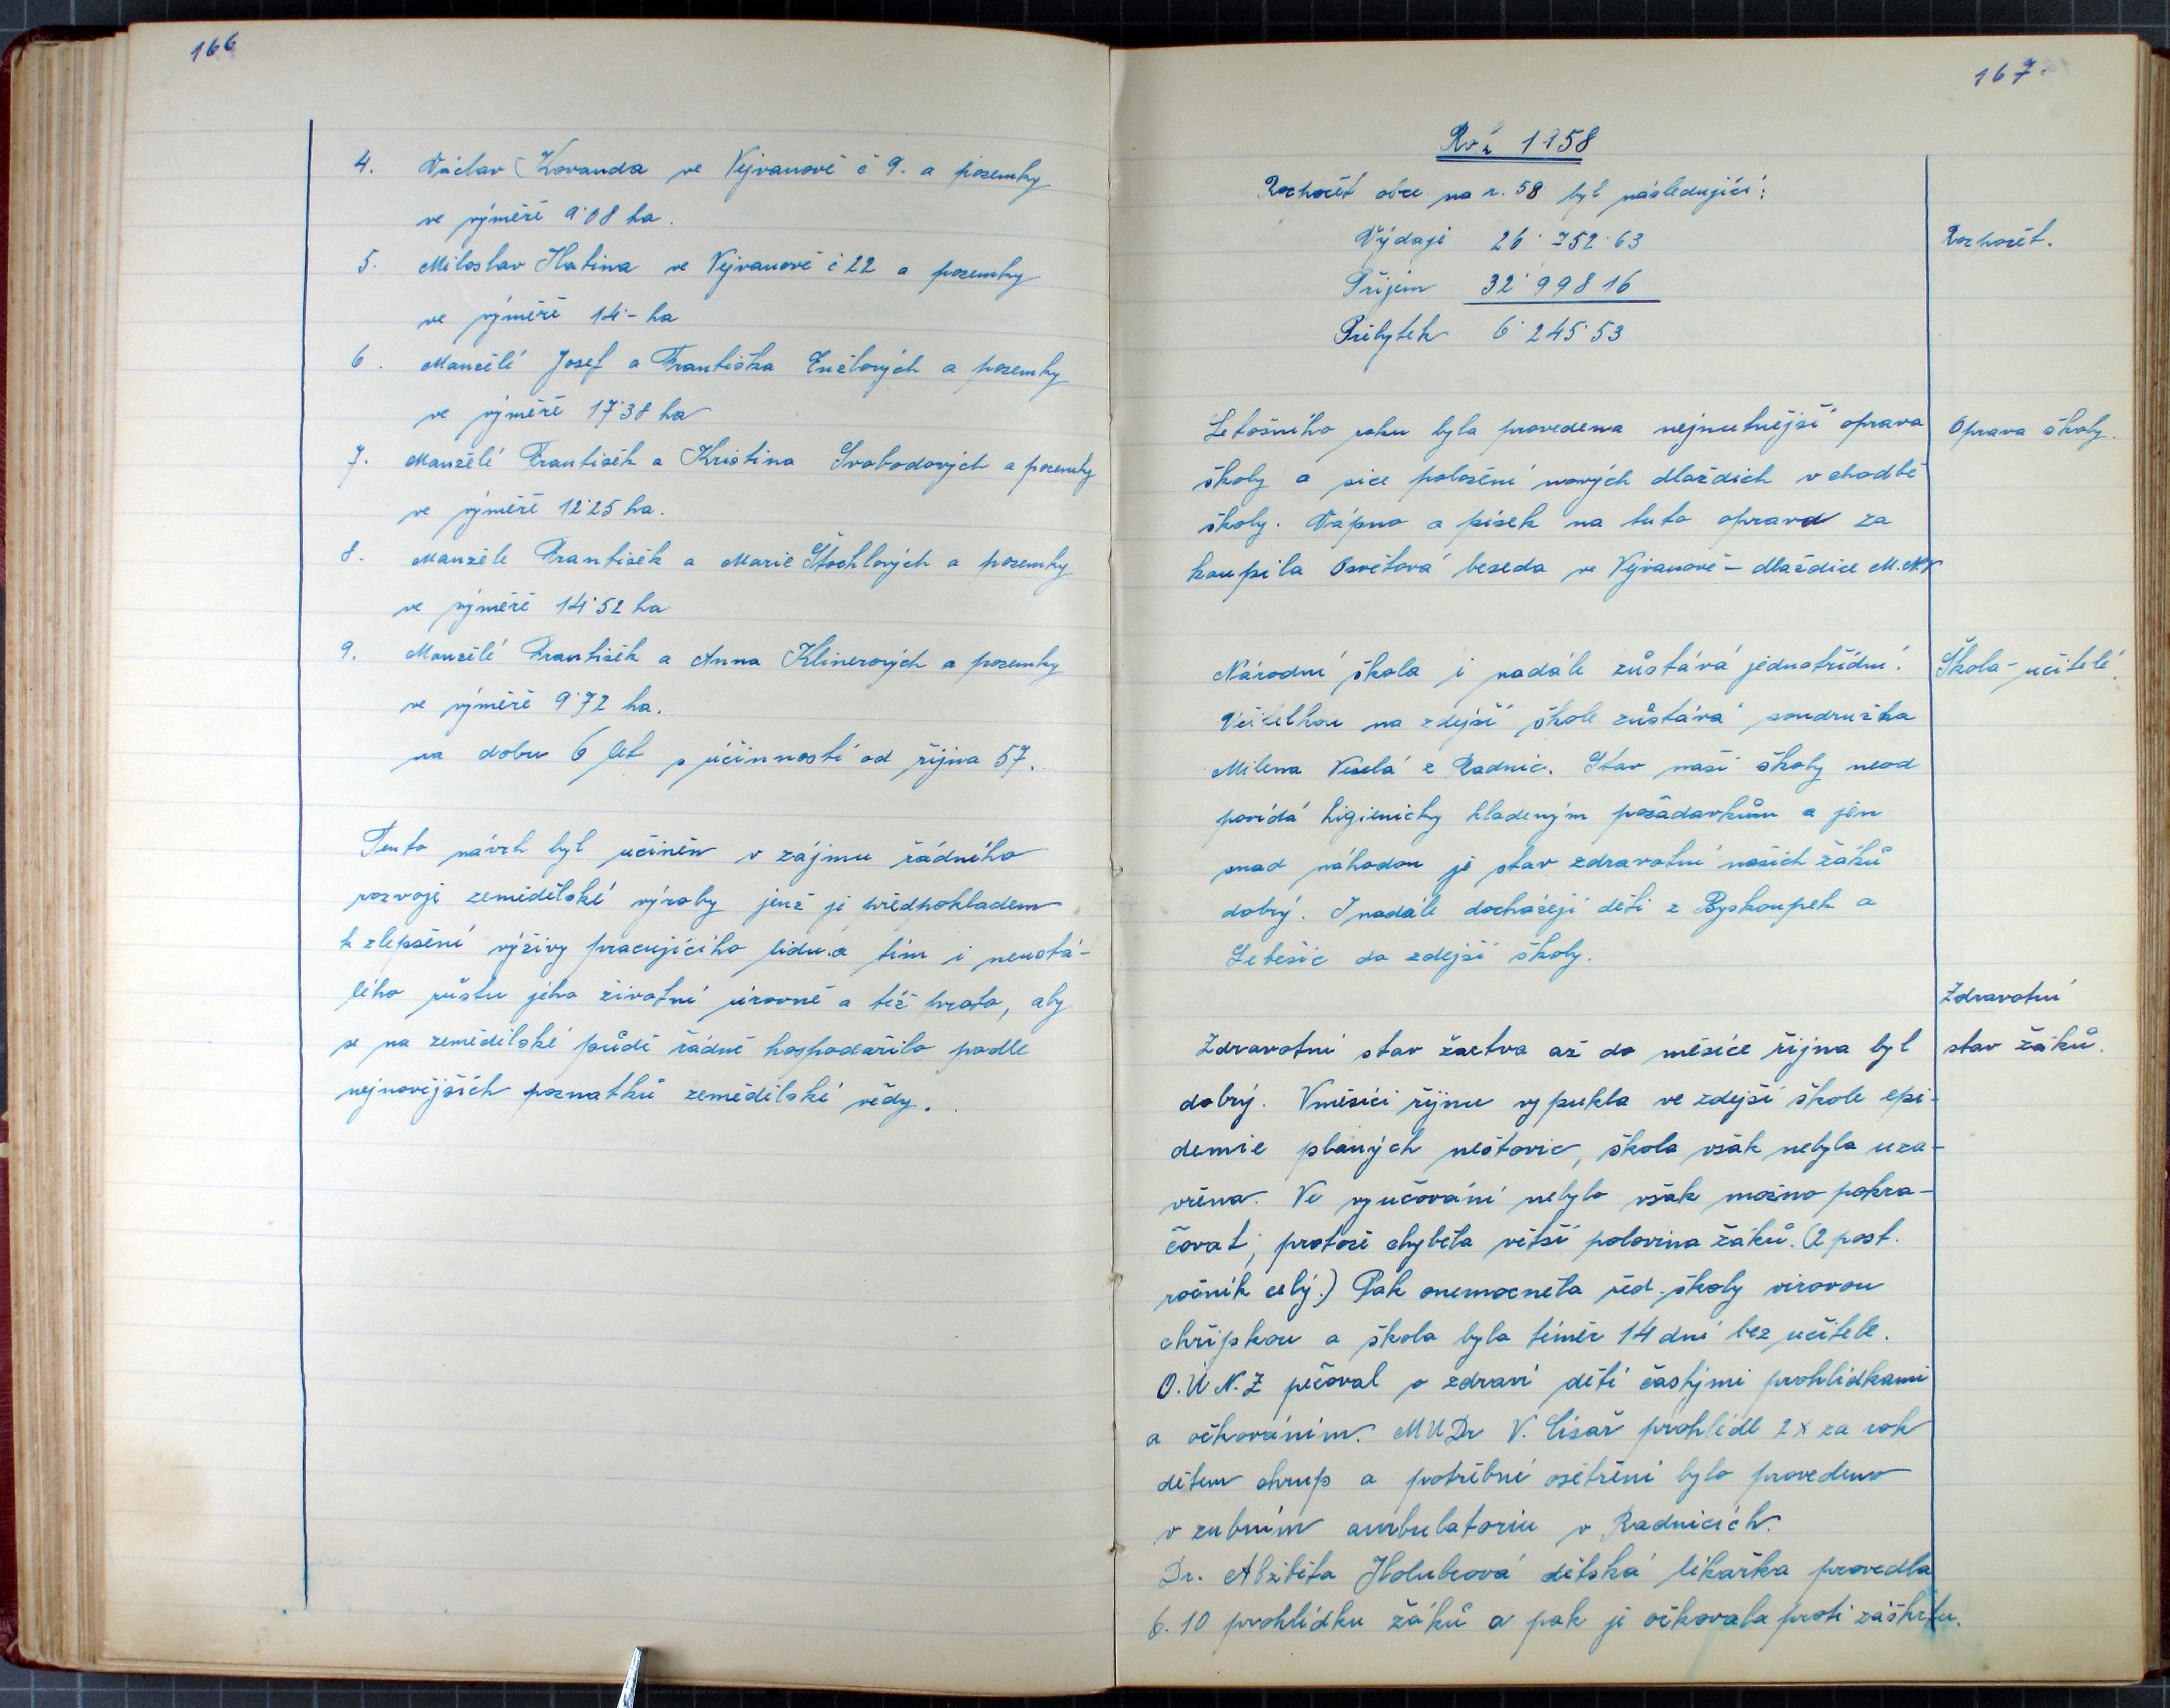 166
4. Václav Kovanda ve Vejvanově č 9. a pozemky
ve výměře 9·08 ha.
5. Miloslav Hatina ve Vejvanově č 22 a pozemky
ve výměře 14·- ha
6. Manželé Josef a Františka Enžlových a pozemky
ve výměře 17·38 ha
7. Manželé František a Kristina Svobodových a pozemky
ve výměře 12·25 ha.
8. Manžele František a Marie Štochlových a pozemky
ve výměře 14·52 ha
9. Manželé František a Anna Klinerových a pozemky
ve výměře 9·72 ha.
na dobu 6 let s účinností od října 57.
Tento návrh byl učiněn v zájmu řádného
rozvoje zemědělské výroby jenž je předpokladem
k zlepšení výživy pracujícího lidu a tím i neustá-
lého růstu jeho životní úrovně a též proto, aby
se na zemědělské půdě řádně hospodařilo podle
nejnovějších poznatků zemědělské vědy.
167.
Rok 1958
Rozpočet obce na r. 58 byl následující:
Výdaje 26·752·63
Rozpočet.
Příjem 32·998 16
Přebytek 6·245·53
Letošního roku byla provedena nejnutnější oprava
Oprava školy.
školy a sice položení nových dlaždich v chodbě
školy. Vápno a písek na tuto opravu za
koupila Osvětová beseda ve Vejvanově - dlaždice M.N.V
Národní škola i nadále zůstává jednotřídní.
Škola - učitelé.
Učitelkou na zdejší škole zůstává soudružka
Milena Veselá z Radnic. Stav naší školy neod
povídá higienicky kladeným požadavkům a jen
snad náhodou je stav zdravotní našich žáků
dobrý. I nadále docházejí děti z Byskoupek a
Lebešic do zdejší školy.
Zdravotní
stav žáků.
Zdravotní stav žactva až do měsíce října byl
dobrý. V měsíci říjnu vypukla ve zdejší škole epi-
demie planých neštovic, škola však nebyla uza-
vřena. Ve vyučování nebylo však možno pokra-
čovat, protože chyběla větší polovina žáků. (2 post.
ročník celý.) Pak onemocněla řed. školy virovou
chřipkou a škola byla téměř 14 dní bez učitele.
O.Ú.N.Z pečoval o zdraví dětí častými prohlídkami
a očkováním. MUDr V. Císař prohlédl 2x za rok
dětem chrup a potřebné ošetření bylo provedeno
v zubním ambulatoriu v Radnicích.
Dr. Alžběta Holubcová dětská lékařka provedla
6. 10 prohlídku žáků a pak je očkovala proti záškrtu.